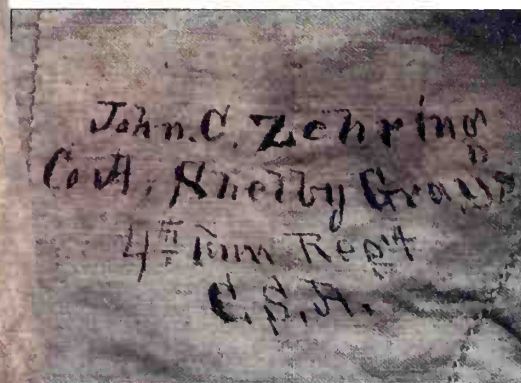 John. C. Zehring
Co. A, Shelby Grays
4th Tenn Regt
C. S. A.